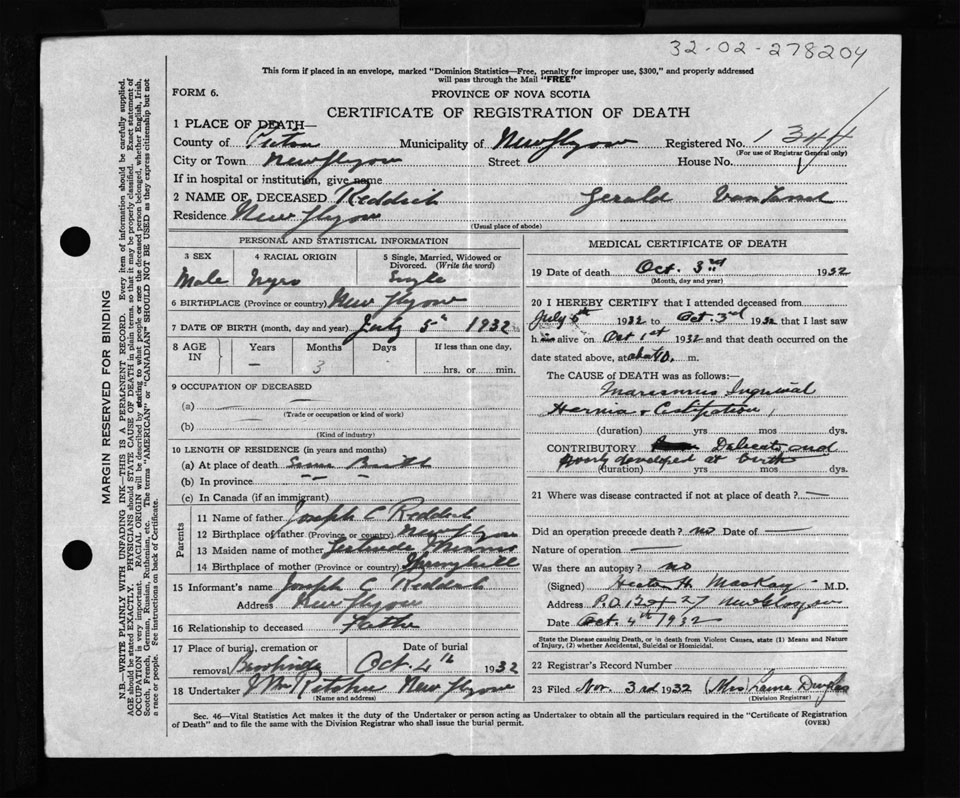 32-02-278204
This form if placed in an envelope, marked "Dominion Statistics—Free, penalty for improper use, $300," and properly addressed
will pass through the Mail "FREE"
FORM 6.
PROVINCE OF NOVA SCOTIA
CERTIFICATE OF REGISTRATION OF DEATH
1 PLACE OF DEATH—
County of Pictou Municipality of New Glasgow Registered No. 1344
(For use of Registrar General only)
City or Town New Glasgow Street House No.
If in hospital or institution, give name
2 NAME OF DECEASED Reddick Gerald
Residence New Glasgow
(Usual place of abode)
PERSONAL AND STATISTICAL INFORMATION
3 SEX
Male
4 RACIAL ORIGIN
Negro
5 Single, Married, Widowed or
Divorced. (Write the word)
Single
6 BIRTHPLACE (Province or country) New Glasgow
7 DATE OF BIRTH (month, day and year) July 5th 1932
8 AGE
IN
Years
—
Months
3
Days
If less than one day,
hrs. or min.
9 OCCUPATION OF DECEASED
(a) —
(Trade or occupation or kind of work)
(b)
(Kind of industry)
10 LENGTH OF RESIDENCE (in years and months)
(a) At place of death Since Birth
(b) In province — —
(c) In Canada (if an immigrant)
Parents
11 Name of father Joseph C Reddick
12 Birthplace of father (Province or country) New Glasgow
13 Maiden name of mother Gertrude
14 Birthplace of mother (Province or country) Springhill
15 Informant's name Joseph C Reddick
Address New Glasgow
16 Relationship to deceased Father
17 Place of burial, cremation or
removal
Date of burial
Oct. 4th 1932
18 Undertaker J W Ritchie New Glasgow
(Name and address)
MEDICAL CERTIFICATE OF DEATH
19 Date of death Oct. 3rd 1932
(Month, day and year)
20 I HEREBY CERTIFY that I attended deceased from
July 5th 1932 to Oct. 3rd 1932 that I last saw
h alive on Oct 1st 1932 and that death occurred on the
date stated above, at about 10. m.
The CAUSE of DEATH was as follows:—
Marasmus Inguinal
Hernia & Constipation
(duration) yrs mos dys.
CONTRIBUTORY Delicate and
poorly developed at birth
(duration) yrs mos dys.
21 Where was disease contracted if not at place of death? —
Did an operation precede death? no Date of —
Nature of operation —
Was there an autopsy? no
(Signed) Hector H. MacKay M.D.
Address P.O. Box 27 New Glasgow
Date Oct. 4th 1932
State the Disease causing Death, or in death from Violent Causes, state (1) Means and Nature
of Injury, (2) whether Accidental, Suicidal or Homicidal.
22 Registrar's Record Number
23 Filed Nov. 3rd 1932 (Mrs) Douglas
(Division Registrar)
Sec. 46—Vital Statistics Act makes it the duty of the Undertaker or person acting as Undertaker to obtain all the particulars required in the "Certificate of Registration
of Death" and to file the same with the Division Registrar who shall issue the burial permit.
(OVER)
MARGIN RESERVED FOR BINDING
N.B.—WRITE PLAINLY WITH UNFADING INK—THIS IS A PERMANENT RECORD. Every item of information should be carefully supplied.
AGE should be stated EXACTLY. PHYSICIANS should STATE CAUSE OF DEATH in plain terms, so that it may be properly classified. Exact statement of
OCCUPATION is very important. RACIAL ORIGIN will be described by stating to what people or race the deceased person belonged, whether English, Irish,
Scotch, French, German, Russian, Ruthenian, etc. The terms "AMERICAN" or "CANADIAN" SHOULD NOT BE USED as they express citizenship but not
a race or people. See instructions on back of Certificate.